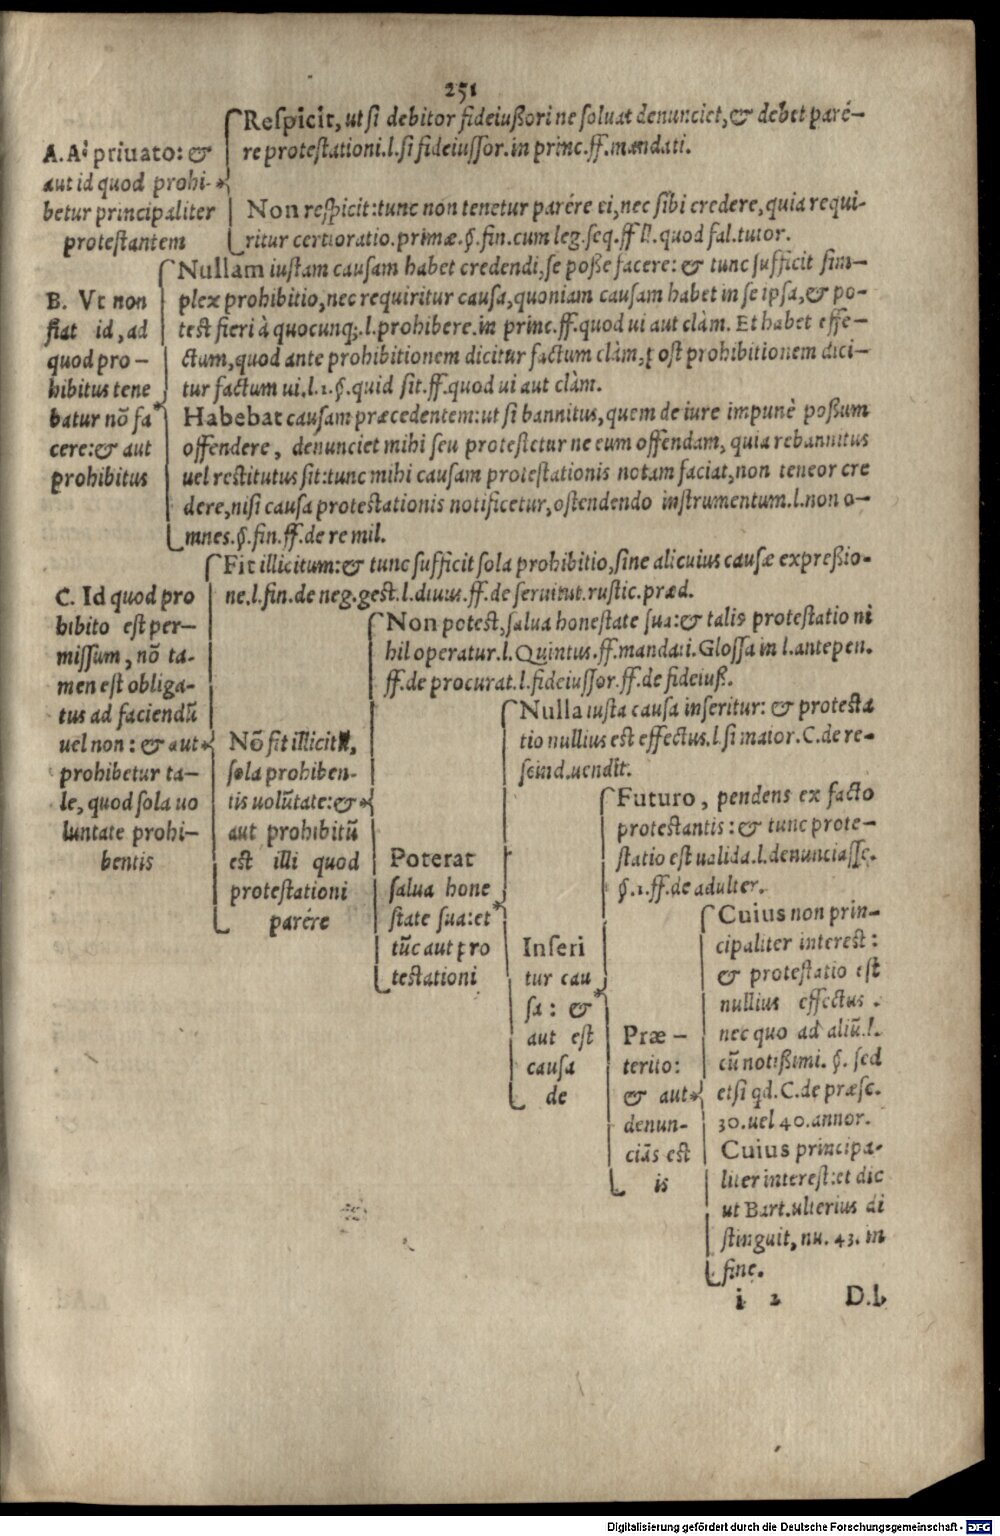 251
A. A' priuato: &
aut id quod prohi-
betur principaliter
protestantem
Respicit, ut si debitor fideiußori ne soluat denunciet, & debet paré-
re protestationi.l.si fideiussor.in princ.ff.mandati.
Non respicit: tunc non tenetur parére ei, nec sibi credere, quia requi-
ritur certioratio.primæ.§.fin.cum leg.seq.ff quod fal.tutor.
B. Vt non
fiat id, ad
quod pro-
hibitus tene
batur nō fa
cere: & aut
prohibitus
Nullam iustam causam habet credendi, se poße facere: & tunc sufficit sim-
plex prohibitio, nec requiritur causa, quoniam causam habet in se ipsa, & po-
test fieri à quocunq;.l.prohibere.in princ.ff.quod ui aut clàm. Et habet effe-
ctum, quod ante prohibitionem dicitur factum clàm, post prohibitionem dici-
tur factum ui.l.1.§.quid sit.ff.quod ui aut clàm.
Habebat causam præcedentem: ut si bannitus, quem de iure impunè poßum
offendere, denunciet mihi seu protestetur ne eum offendam, quia rebannitus
uel restitutus sit: tunc mihi causam protestationis notam faciat, non teneor cre
dere, nisi causa protestationis notificetur, ostendendo instrumentum.l.non o-
mnes.§.fin.ff.de re mil.
C. Id quod pro
hibito est per-
missum, nō ta-
men est obliga-
tus ad faciendū
uel non: & aut
prohibetur ta-
le, quod sola uo
luntate prohi-
bentis
Fit illicitum: & tunc sufficit sola prohibitio, sine alicuius causæ expreßio-
ne.l.fin.de neg.gest.l.diuus.ff.de seruitut.rustic.præd.
Nō fit illicitū,
sola prohiben-
tis uolūtate: &
aut prohibitū
est illi quod
protestationi
parére
Non potest, salua honestate sua: & talis protestatio ni
hil operatur.l.Quintus.ff.mandati.Glossa in l.antepen.
ff.de procurat.l.fideiussor.ff.de fideiuß.
Poterat
salua hone
state sua: et
tūc aut pro
testationi
Nulla iusta causa inseritur: & protesta
tio nullius est effectus.l.si maior.C.de re-
scind.uendit.
Inseri
tur cau
sa: &
aut est
causa
de
Futuro, pendens ex facto
protestantis: & tunc prote-
statio est ualida.l.denunciasse.
§.1.ff.de adulter.
Præ-
terito:
& aut
denun-
ciās est
is
Cuius non prin-
cipaliter interest:
& protestatio est
nullius effectus.
nec quo ad aliū.l.
cū notißimi.§.sed
etsi qd.C.de præsc.
30.uel 40.annor.
Cuius principa-
liter interest: et dic
ut Bart.ulterius di
stinguit, nu.43.in
fine.
i 2 D.I.
Digitalisierung gefördert durch die Deutsche Forschungsgemeinschaft - DFG